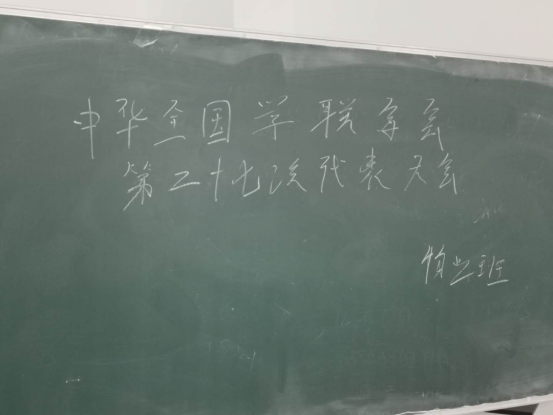 中华全国学联委会
第二十七次代表大会
物业班